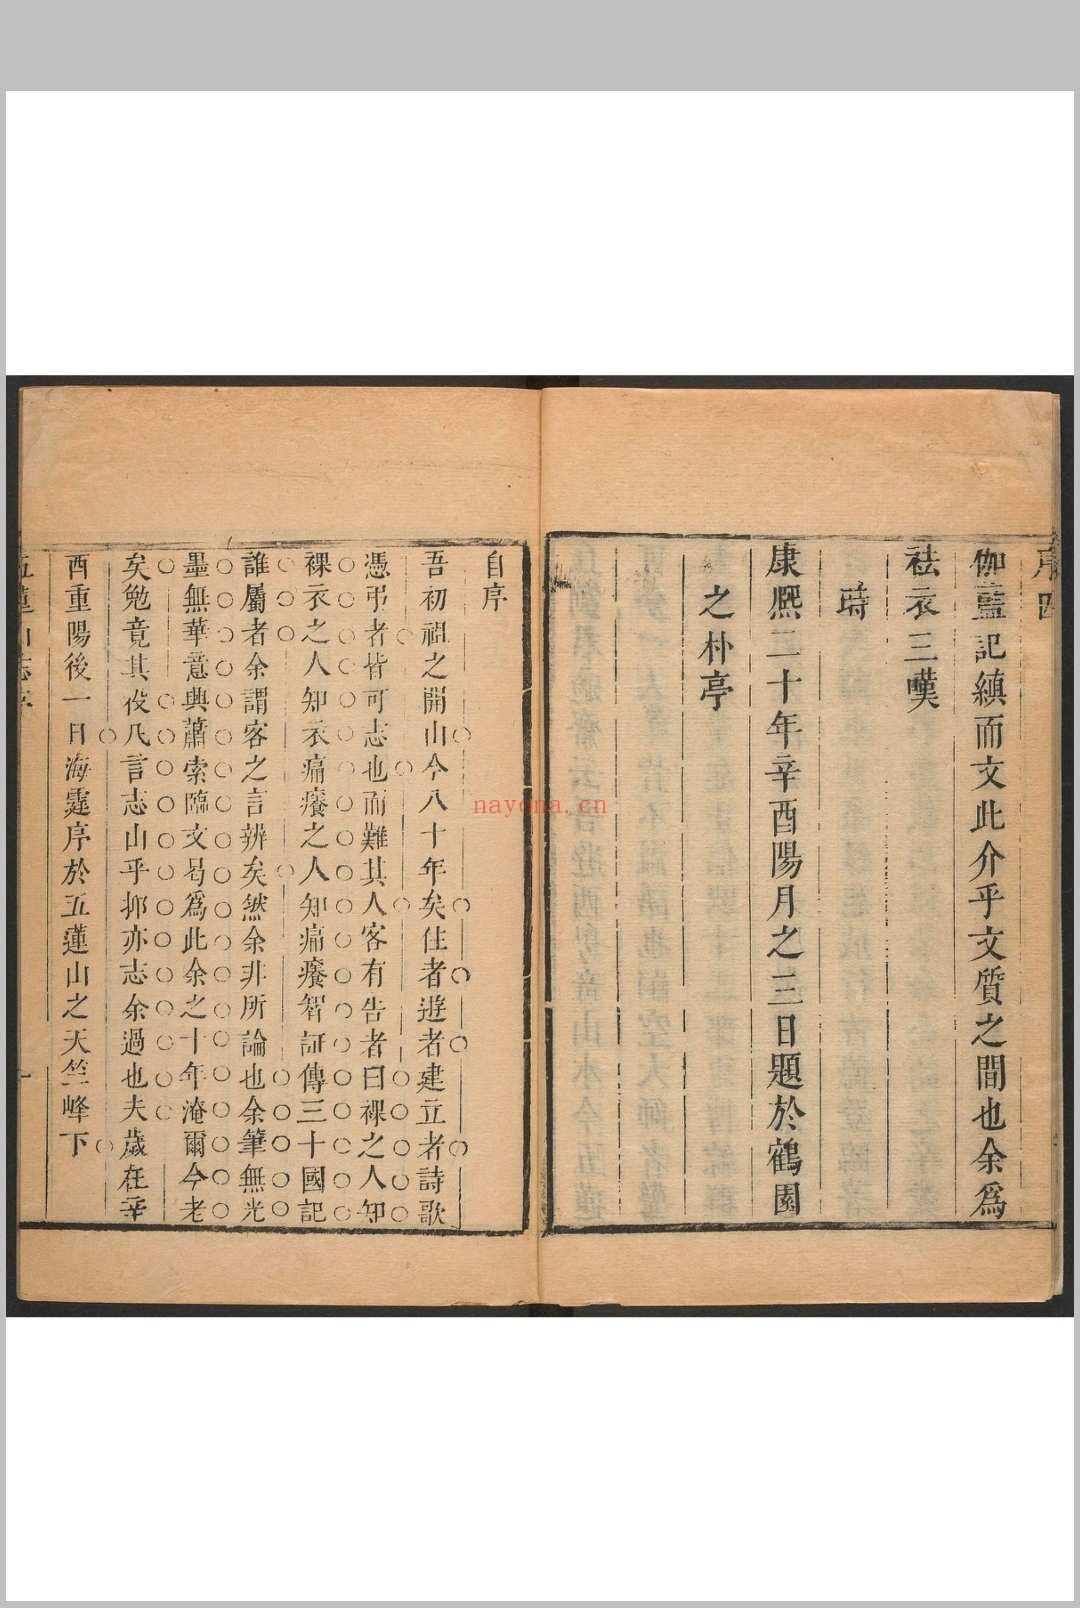 序四
伽藍記縝而文此介乎文質之間也余爲
袪衣三嘆
時
康熈二十年辛酉陽月之三日題於鶴園
之朴亭
自序
吾初祖之開山今八十年矣住者遊者建立者詩歌
憑弔者皆可志也而難其人客有告者曰裸之人知
裸衣之人知衣痛癢之人知痛癢智証傳三十國記
誰屬者余謂客之言辨矣然余非所論也余筆無光
墨無華意興蕭索臨文曷爲此余之十年淹爾今老
矣勉竟其役凡言志山乎抑亦志余過也夫歲在辛
酉重陽後一日海霆序於五蓮山之天竺峰下
五蓮山志序
一
nayona.cn